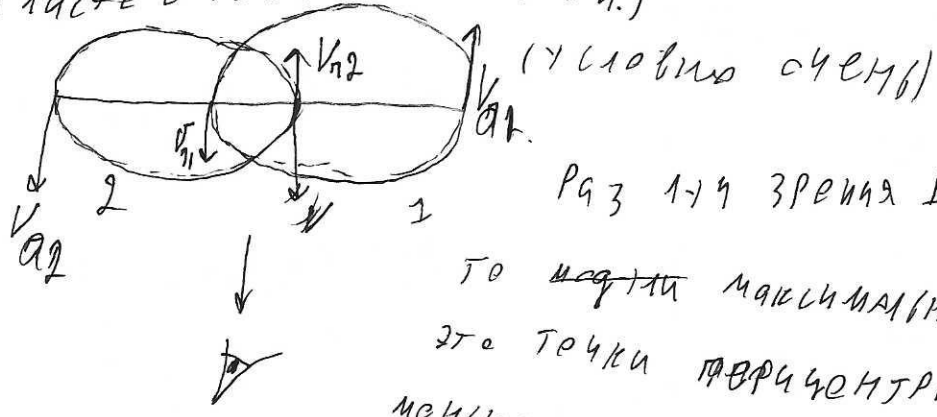 листе
Vп2
(условно очень)
Vп1
Va1.
V
2
1
Va2
Раз луч зрения
то максимальн
это точки перицентр